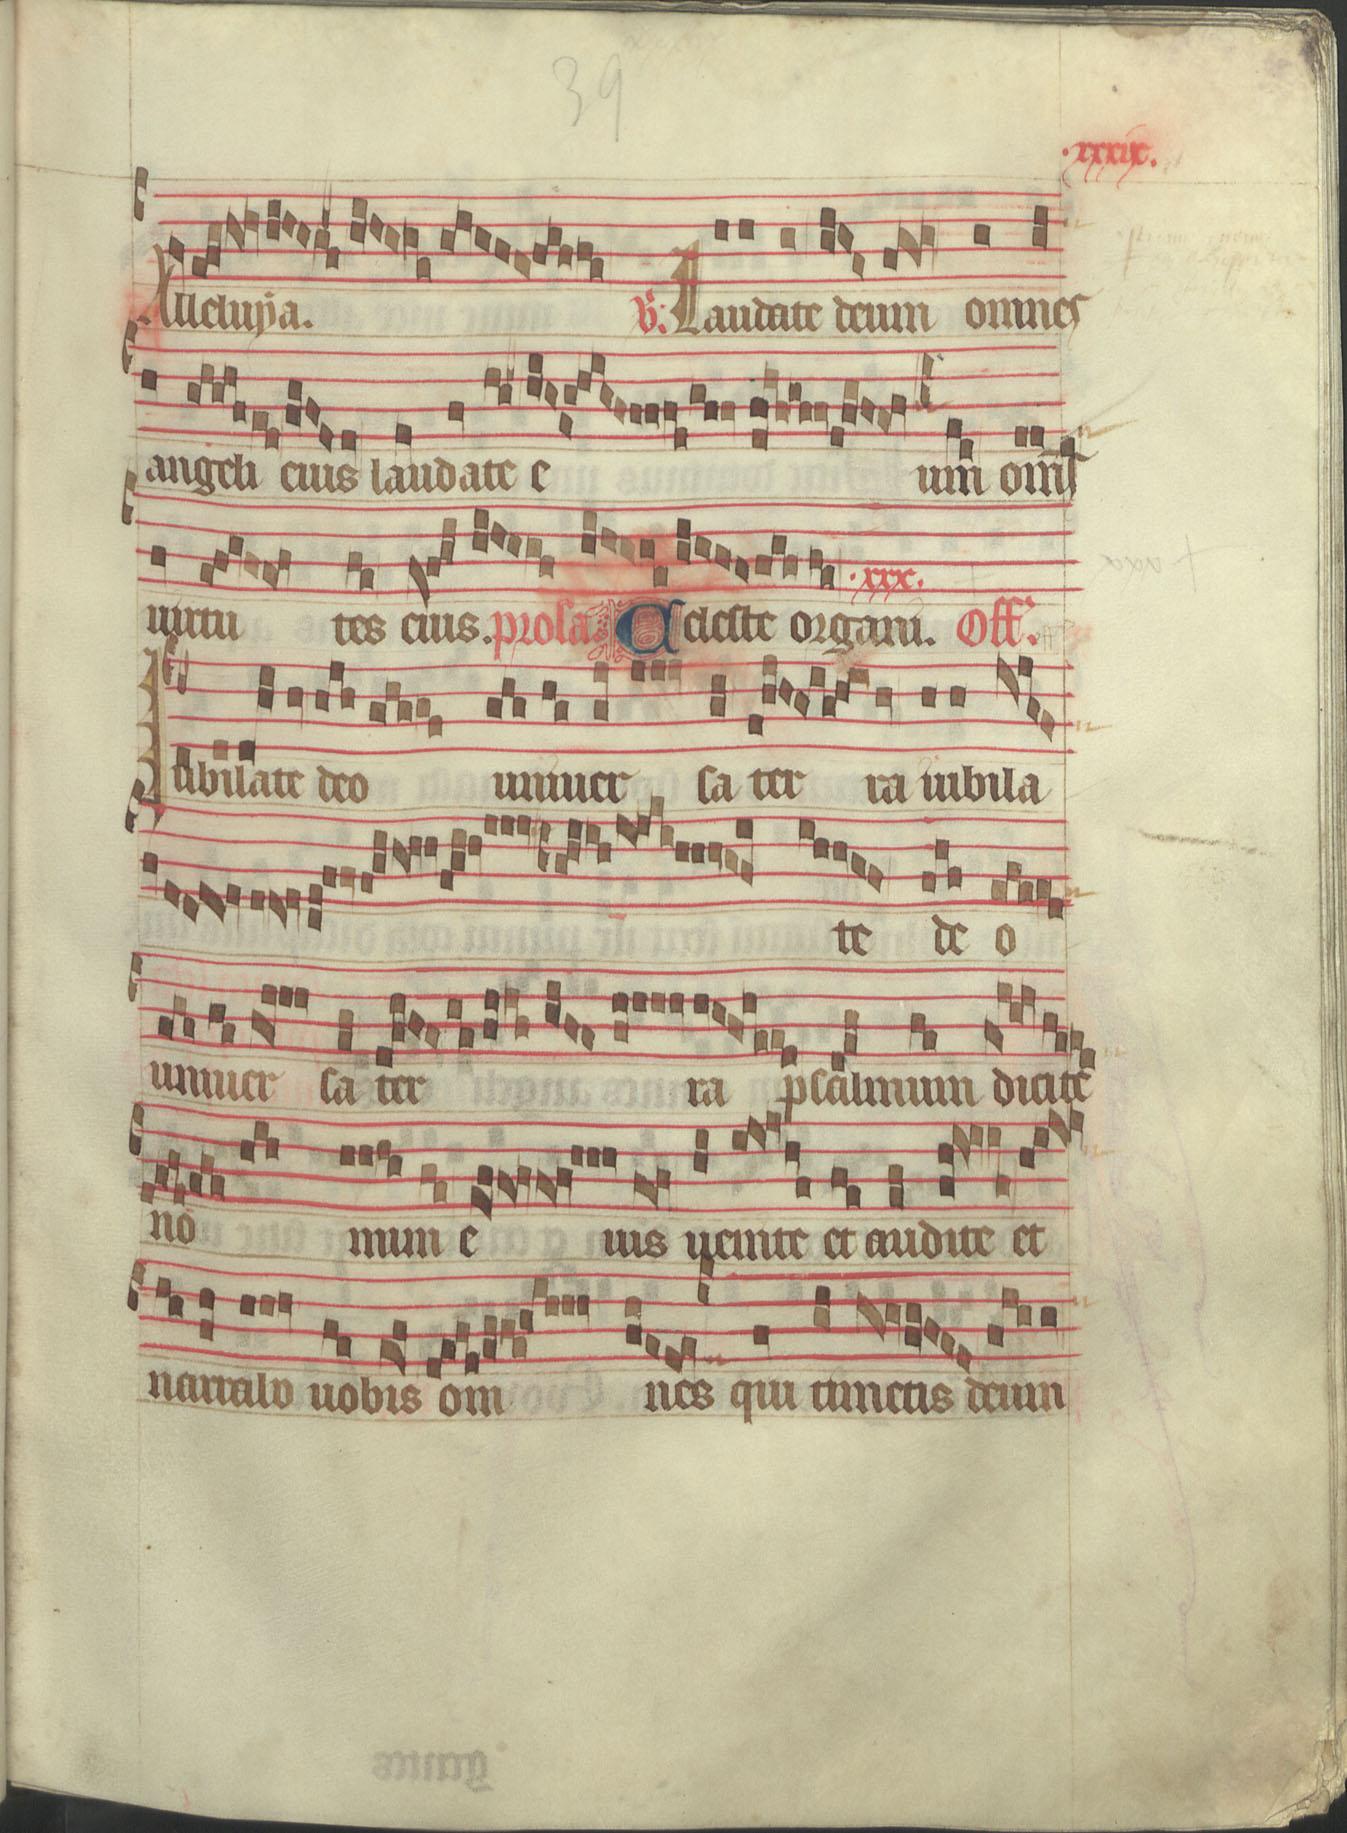 39
·xxxix·
Alleluya. V: Laudate deum omnes
angeli eius laudate e um om̄s
uirtu tes eius. prosa Celeste organū. ·xxx· Off.
Iubilate deo uniuer sa ter ra iubila
te de o
uniuer sa ter ra psalmum dicite
no mini e ius uenite et audite et
narrabo uobis om nes qui timetis deum